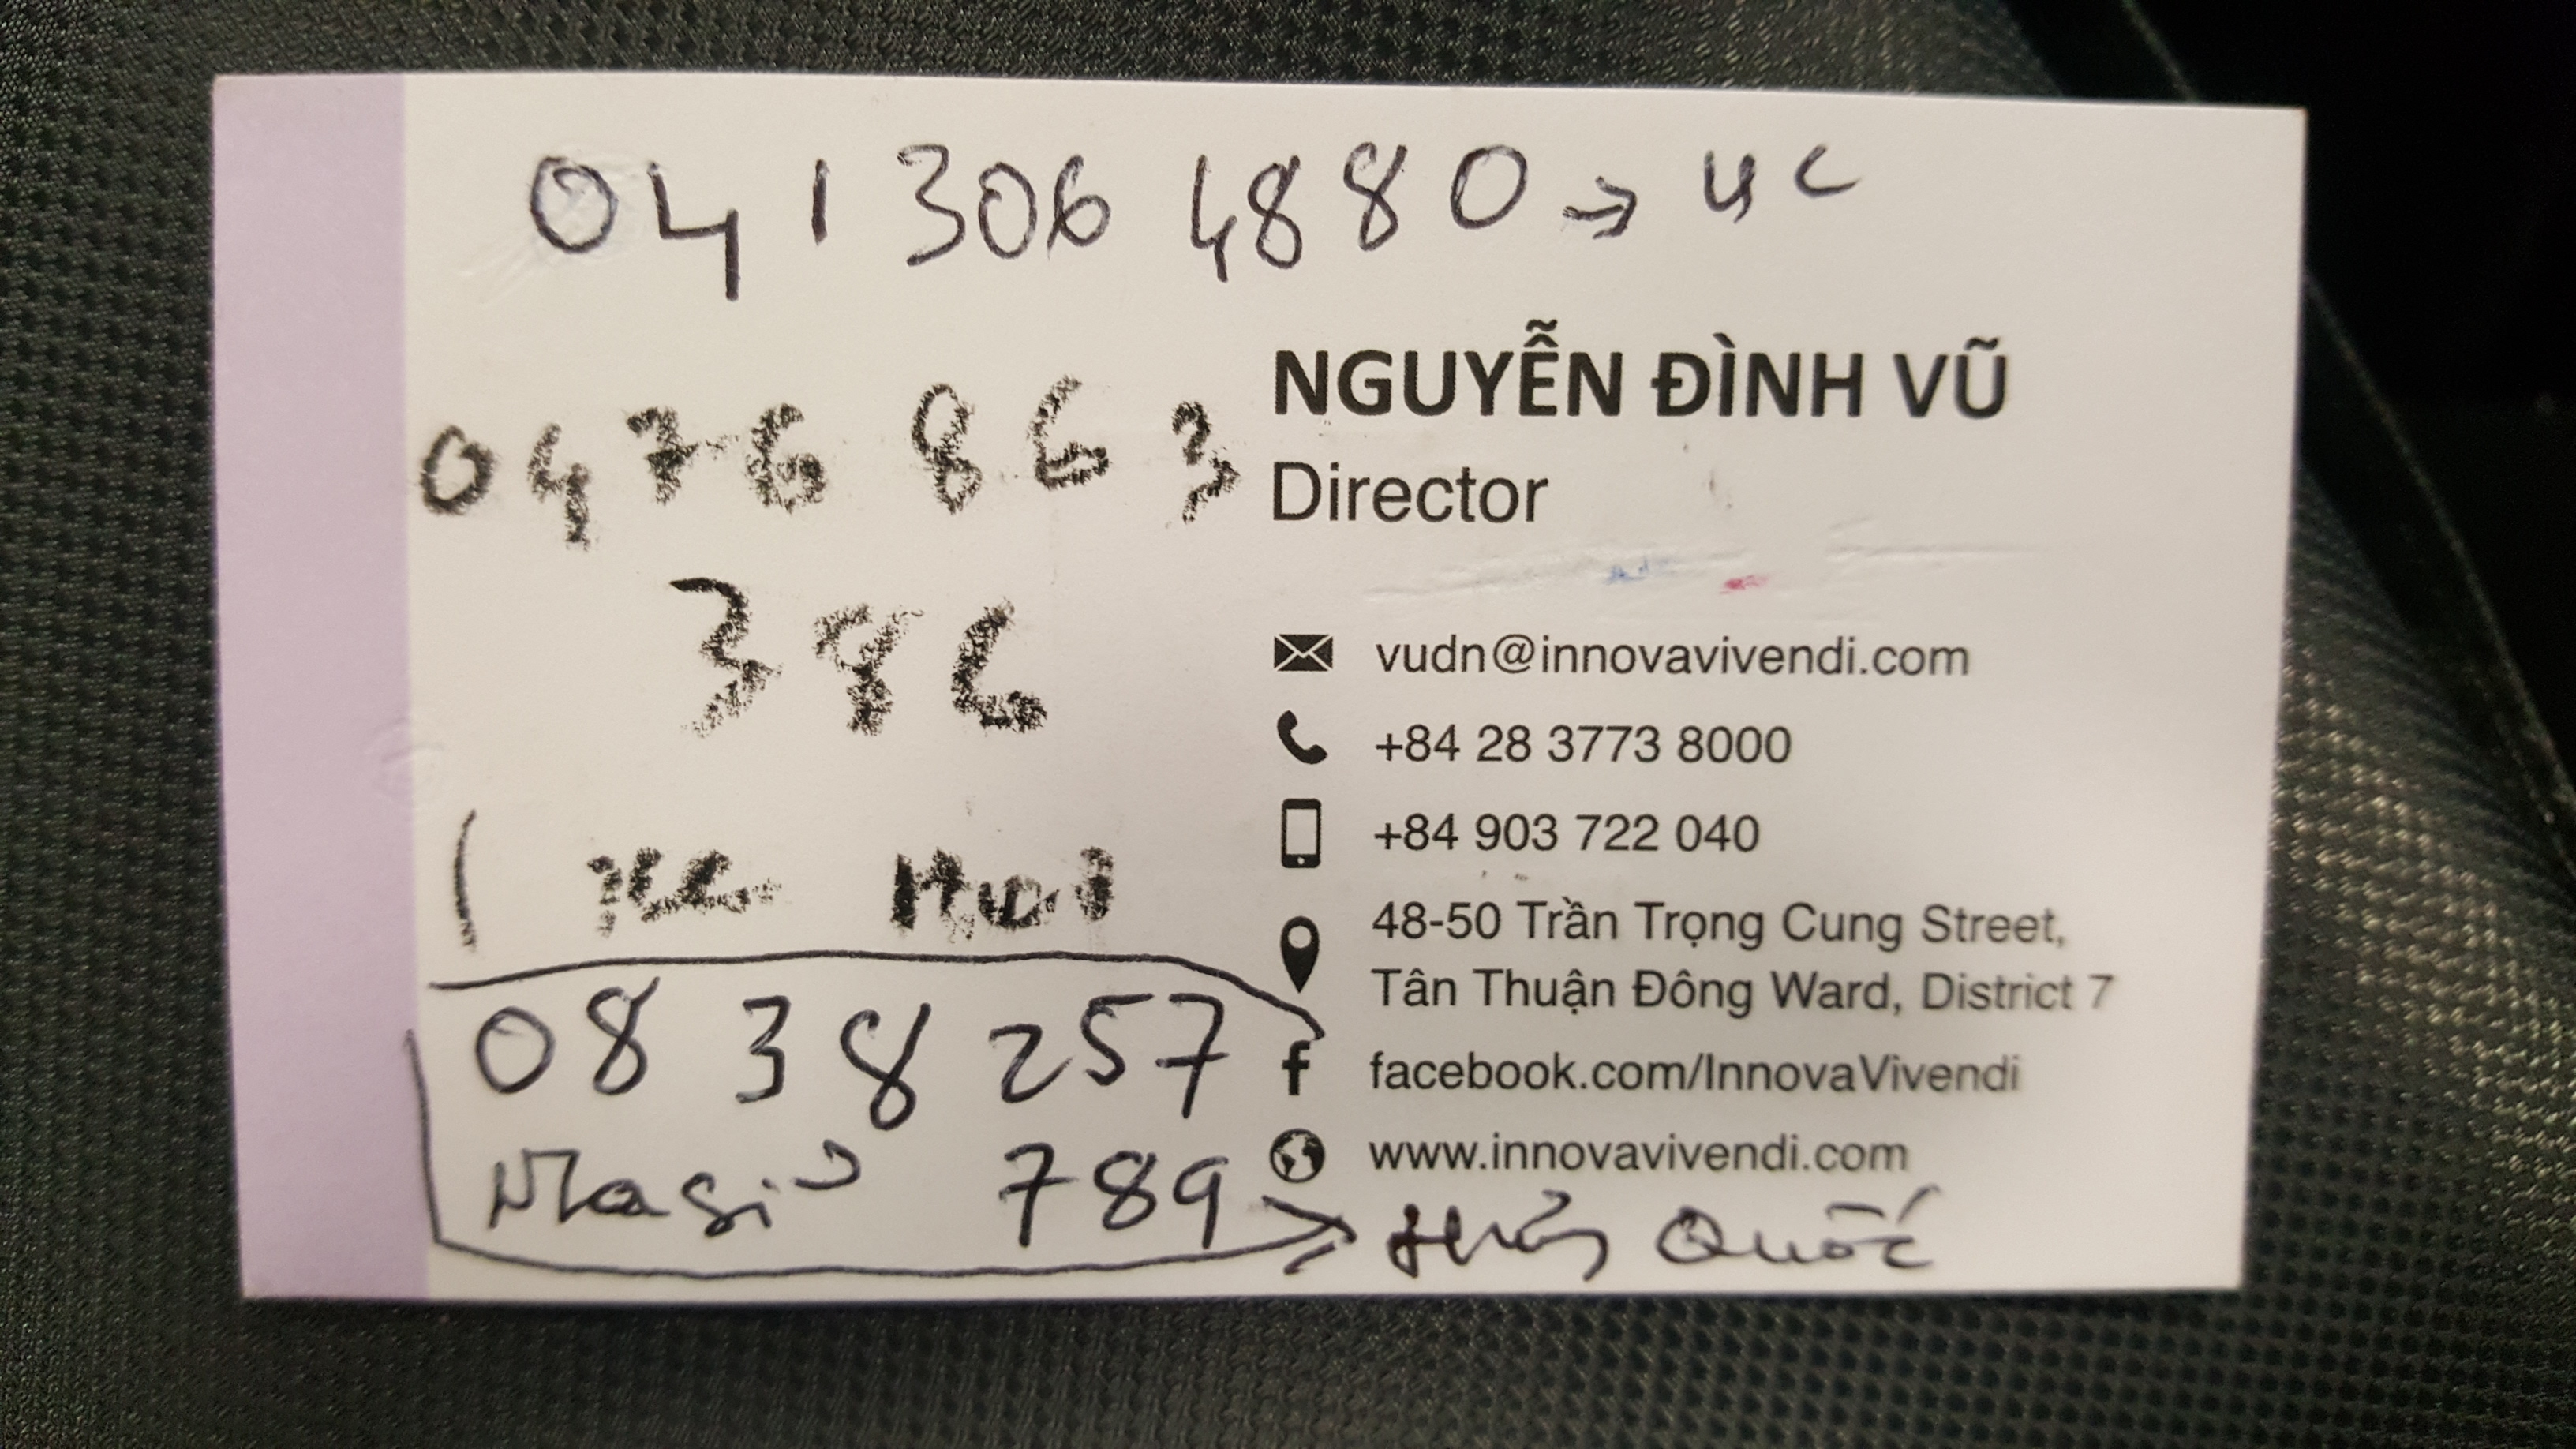 041 306 4880 → uc
NGUYỄN ĐÌNH VŨ
Director
0476 863
386
vudn@innovavivendi.com
+84 28 3773 8000
+84 903 722 040
48-50 Trần Trọng Cung Street,
Tân Thuận Đông Ward, District 7
facebook.com/InnovaVivendi
www.innovavivendi.com
08 38 257
789 → Quốc